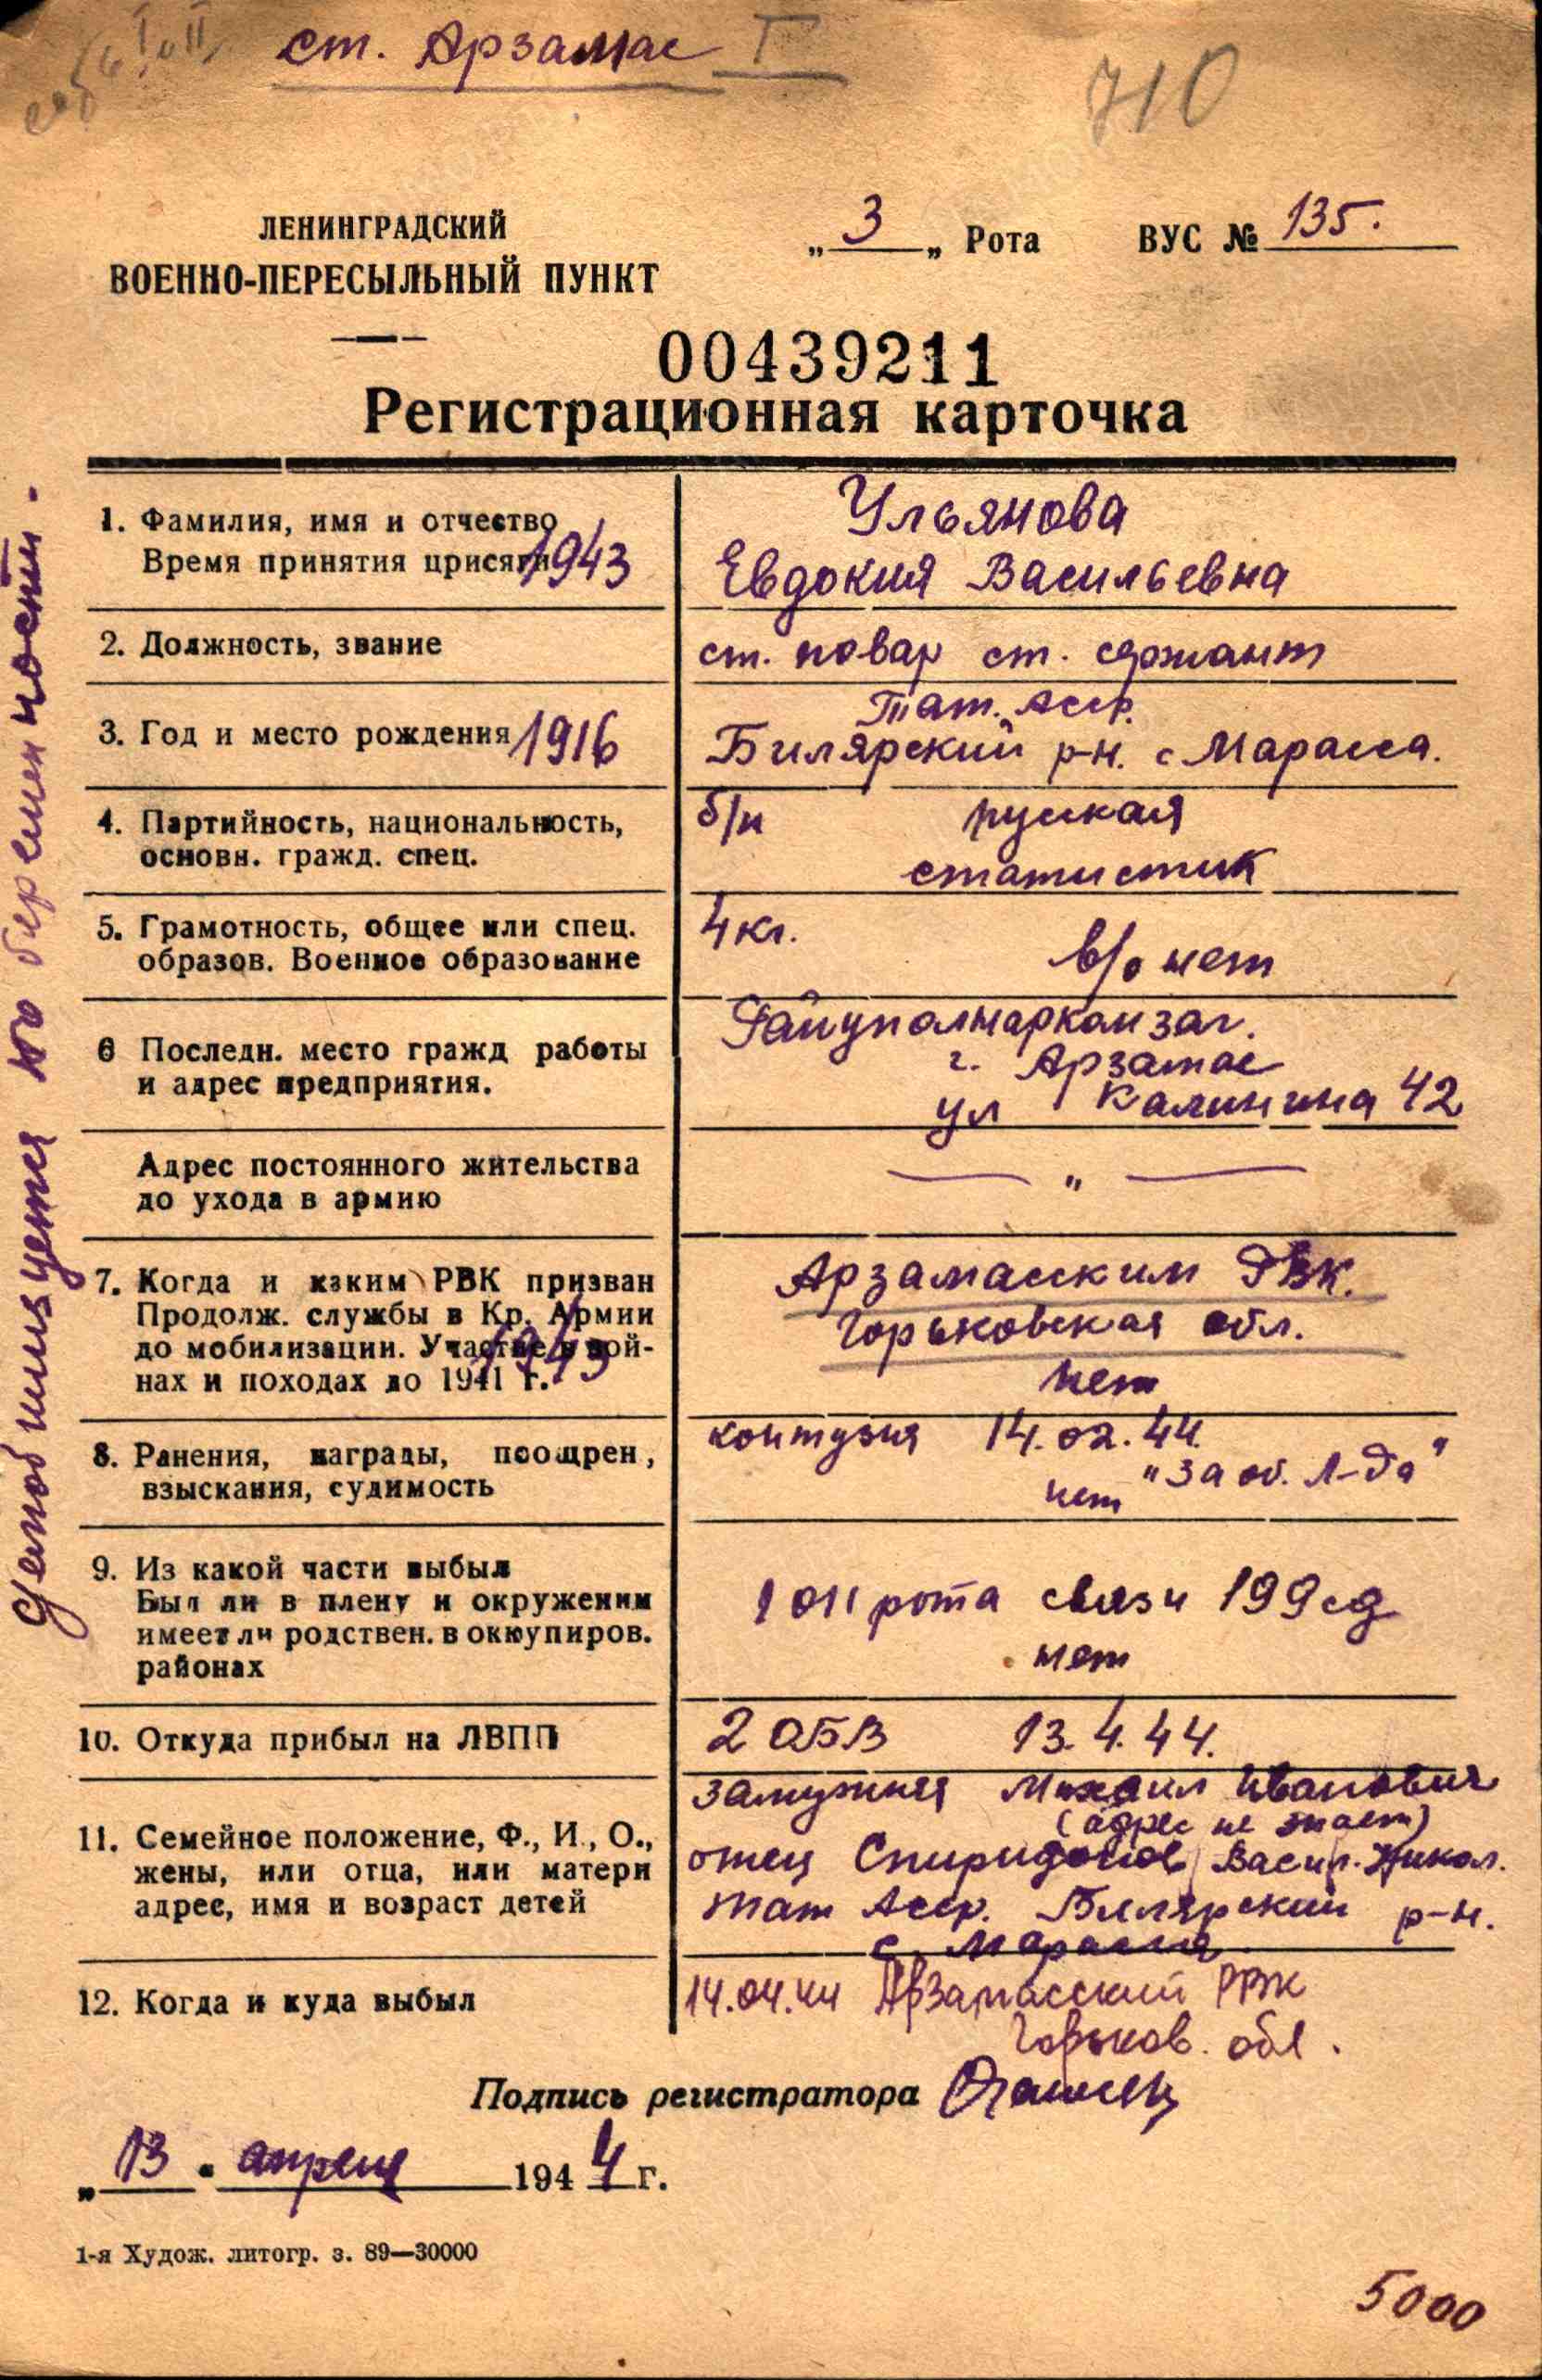 ст. Арзамас I
710
ЛЕНИНГРАДСКИЙ
ВОЕННО-ПЕРЕСЫЛЬНЫЙ ПУНКТ
„ 3 „ Рота ВУС № 135.
00439211
Регистрационная карточка
1. Фамилия, имя и отчество
Время принятия присяги 1943
Ульянова
Евдокия Васильевна
2. Должность, звание
ст. повар ст. сержант
3. Год и место рождения 1916
Тат. Асср.
Билярский р-н. с Марасса.
4. Партийность, национальность,
основн. гражд. спец.
б/п руская
статистик
5. Грамотность, общее или спец.
образов. Военное образование
4 кл.
в/о нет
6 Последн. место гражд работы
и адрес предприятия.
г. Арзамас
ул Калинина 42
Адрес постоянного жительства
до ухода в армию
— " —
7. Когда и каким РВК призван
Продолж. службы в Кр. Армии
до мобилизации. Участие в вой-
нах и походах до 1941 г. 1943
Арзамасским РВК.
Горьковская обл.
нет
8. Ранения, награды, поощрен,
взыскания, судимость
контузия 14.02.44.
"За об. Л-да"
нет
9. Из какой части выбыл
Был ли в плену и окружении
имеет ли родствен. в оккупиров.
районах
рота связи 199 сд
нет
10. Откуда прибыл на ЛВПП
2 ОБВ 13.4.44.
11. Семейное положение, Ф., И., О.,
жены, или отца, или матери
адрес, имя и возраст детей
замужняя Михаил Иванович
(адрес не знает)
отец Спиридонов Васил. Никол.
тат Асср. Билярский р-н.
с. Марасса
12. Когда и куда выбыл
14.04.44 Арзамасский РВК
Горьков. обл.
Подпись регистратора
„ 13 " апреля 1944 г.
1-я Худож. литогр. з. 89—30000
5000
Демобилизуется по беременности.